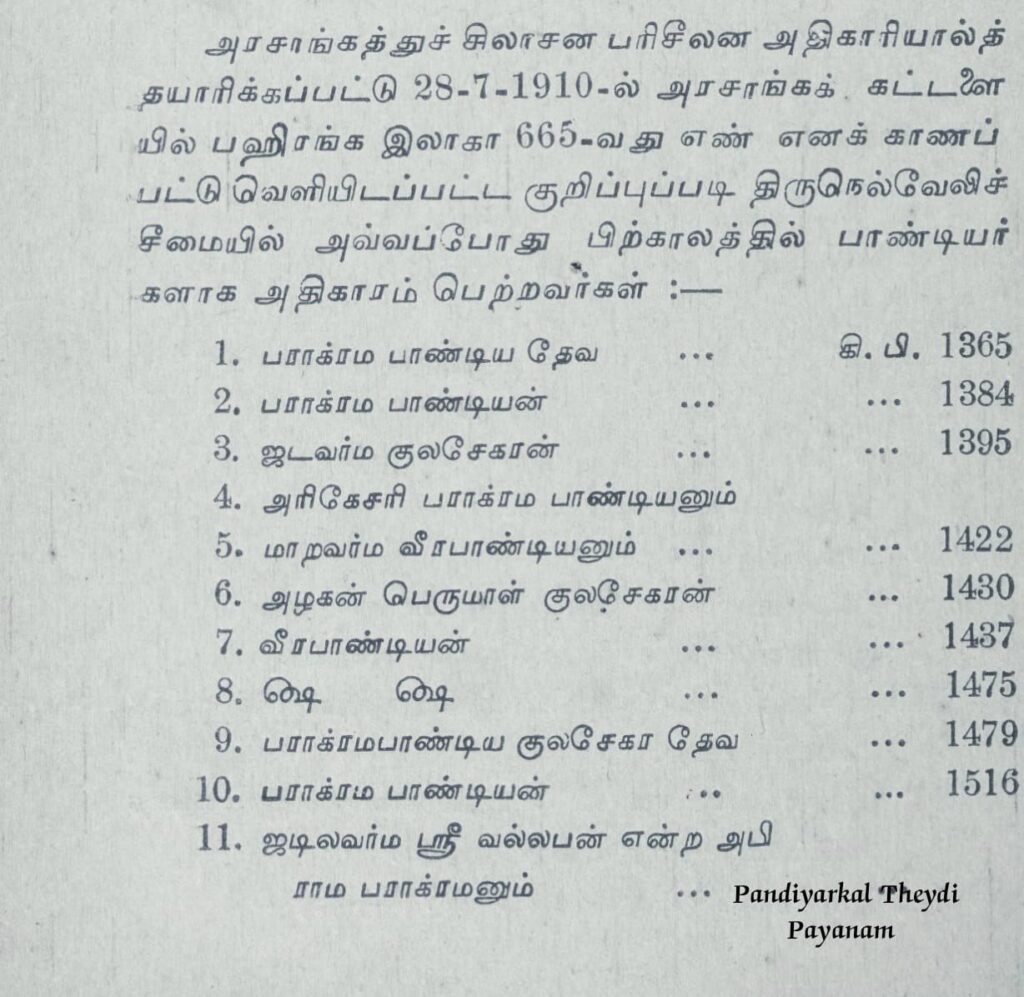 அரசாங்கத்துச் சிலாசன பரிசீலன அதிகாரியால்த்
தயாரிக்கப்பட்டு 28-7-1910-ல் அரசாங்கக் கட்டளை
யில் பஹிரங்க இலாகா 665-வது எண் எனக் காணப்
பட்டு வெளியிடப்பட்ட குறிப்புப்படி திருநெல்வேலிச்
சீமையில் அவ்வப்போது பிற்காலத்தில் பாண்டியர்
களாக அதிகாரம் பெற்றவர்கள் :—
1. பராக்ரம பாண்டிய தேவ ... கி. பி. 1365
2. பராக்ரம பாண்டியன் ... ... 1384
3. ஜடவர்ம குலசேகரன் ... ... 1395
4. அரிகேசரி பராக்ரம பாண்டியனும்
5. மாறவர்ம வீரபாண்டியனும் ... ... 1422
6. அழகன் பெருமாள் குலசேகரன் ... 1430
7. வீரபாண்டியன் ... ... 1437
8. ௸ ௸ ... ... 1475
9. பராக்ரமபாண்டிய குலசேகர தேவ ... 1479
10. பராக்ரம பாண்டியன் ... ... 1516
11. ஜடிலவர்ம ஸ்ரீ வல்லபன் என்ற அபி
ராம பராக்ரமனும் ...
Pandiyarkal Theydi
Payanam